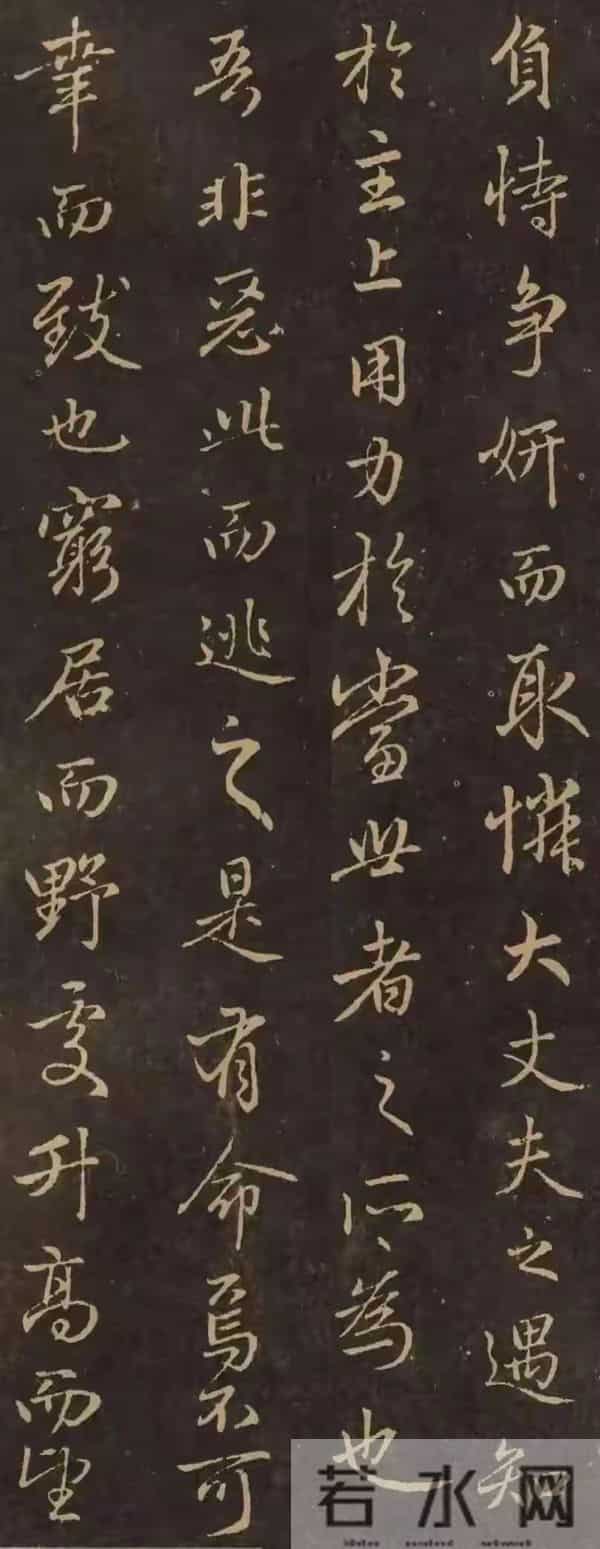 負恃争妍而取憐大丈夫之遇知
於主上用力於當世者之所為也
吾非惡此而逃之是有命焉不可
幸而致也窮居而野處升高而望
若水网